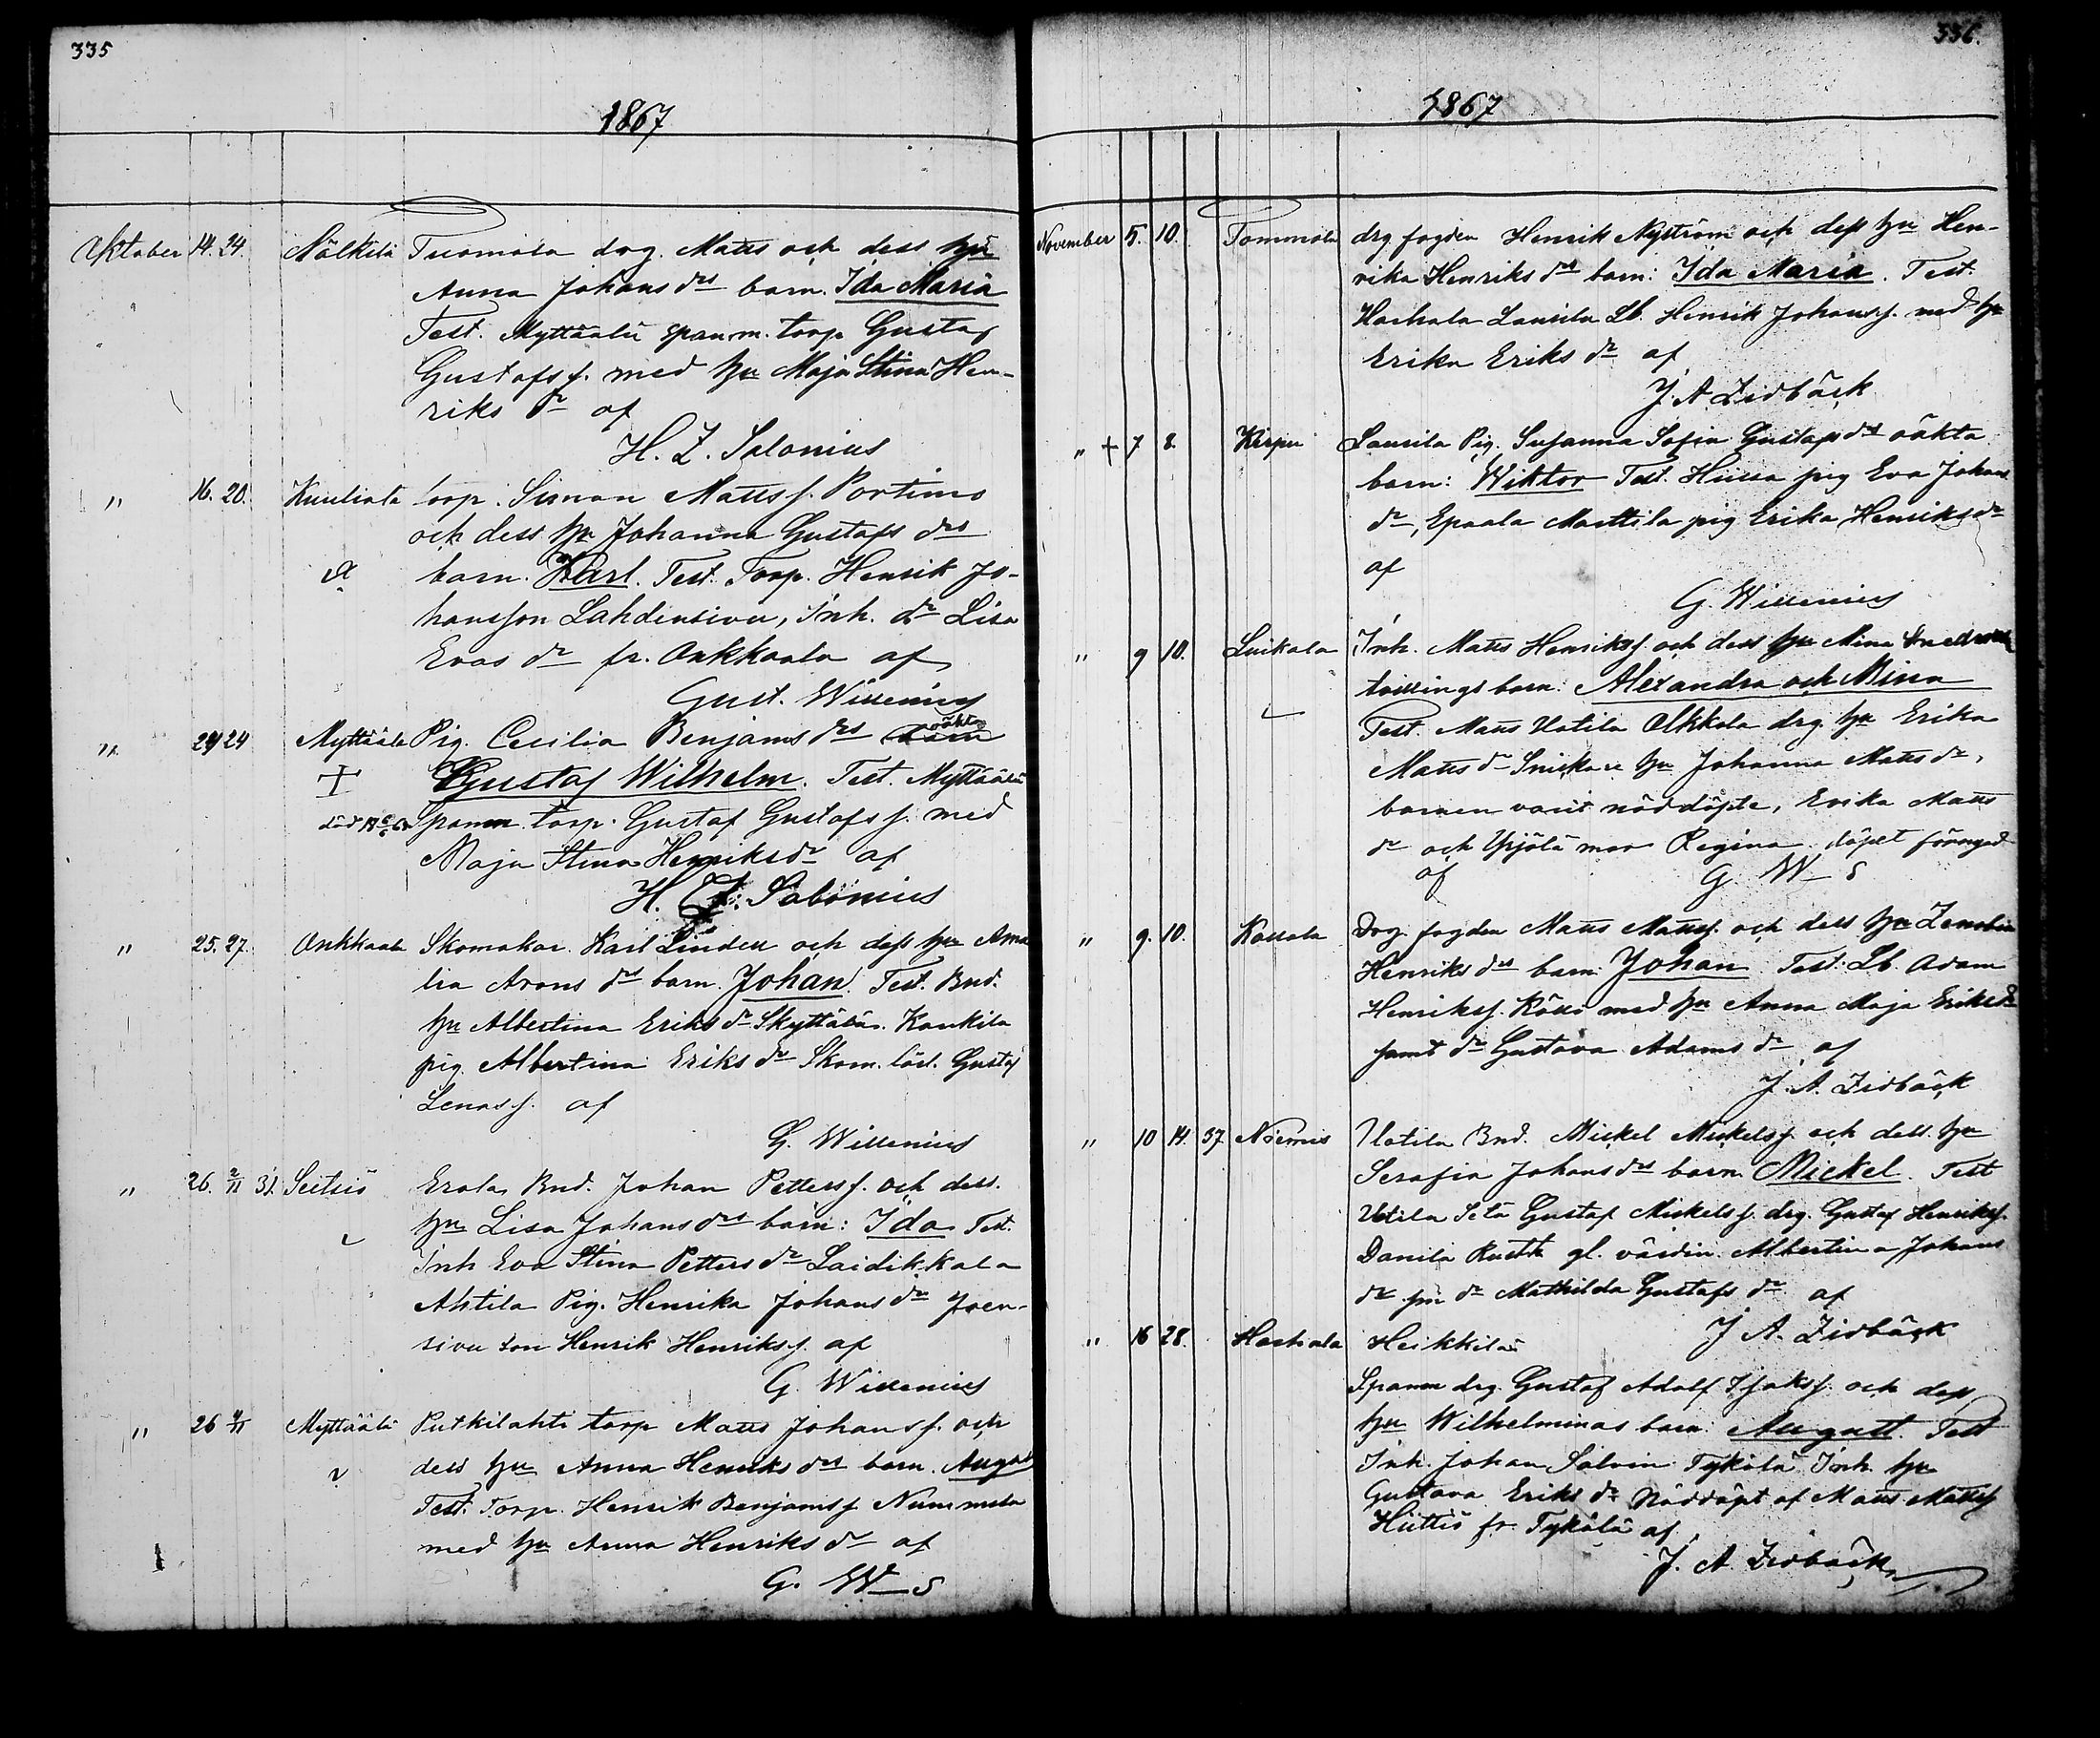 335
1867
Oktober 14. 24. Nälkilä Tuomola drg. Matts och dess hu
Anna Johans drs barn. Ida Maria
Test. Myttäälä Spanm. torp Gustaf
Gustafs s. med hu Maja Stina Hen-
riks dr af
H. Z. Salonius
" 16. 20. Kuuliata torp. Simon Matts s. Portimo
och dess hu Johanna Gustafs drs
barn. Karl. Test. Torp. Henrik Jo-
hansson Lahdensivu, Inh. dr Lisa
Evas dr fr. Onkkaala af
Gust. Willenius
" 24 24 Myttäälä Pig. Cecilia Benjams drs oäkta barn
Gustaf Wilhelm. Test. Myttäälä
död Spanm torp. Gustaf Gustafs s. med
Maja Stina Henriks dr af
H. Z. Salonius
" 25. 27. Onkkaala Skomakar. Karl Lindell och dess hu Ama
lia Arons drs barn. Johan. Test. Bnd.
hu Albertina Eriks dr Skyttälä. Kaukila
pig Albertina Eriks dr Skom. lärl. Gustaf
Lenas s. af
G. Willenius
" 26. 2/11 31. Seitsiö Erola Bnd. Johan Petters s. och dess.
hu Lisa Johans drs barn: Ida Test.
Inh Eva Stina Petters dr Laidikkala
Ahtila Pig. Henrika Johans dr Joen-
sivu son Henrik Henriks s. af
G. Willenius
" 26 4/11 Myttäälä Putkilahti torp Matts Johans s. och
dess hu Anna Henriks drs barn. August
Test. Torp. Henrik Benjams s. Nummela
med hu Anna Henriks dr af
G. W s
336.
1867
November 5. 10. Tommola drg fogden Henrik Nyström och dess hu Hen-
rika Henriks drs barn: Ida Maria. Test.
Hachala Laurila Lb. Henrik Johans s. med hu
Erika Eriks dr af
J. A. Zidbäck
" + 7 8. Kirpu Laurila Pig. Susanna Sofia Gustafs drs oäkta
barn: Wiktor Test. pig Eva Johans
dr, Epaala Marttila pig Erika Henriks dr
af
G. Willenius
" 9 10. Luikala Inh. Matts Henriks s. och dess hu Mina
tvillings barn: Alexandra och Mina
Test. Matts Uotila Olkkola drg hu Erika
Matts dr hu Johanna Matts dr,
barnen varit nöddöpta, Erika Matts
dr och Yijölä mor Regina. döpet förnyad
af G. W s
" 9. 10. Kossola Drg. fogden Matts Matts s. och dess hu Zenobia
Henriks drs barn: Johan Test. Lb. Adam
Henriks s. med hu Anna Maja Eriks dr
samt dr Gustava Adams dr af
J. A. Zidbäck
" 10 14. 37 Niemis Uotila Bnd. Mickel Mickels s. och dess. hu
Serafia Johans drs barn. Mickel. Test
Uotila Gustaf Mickels s. drg. Gustaf Henriks s.
Danila Rusth gl. värdin. Albertina Johans
dr dr Mathilda Gustafs dr af
J. A. Zidbäck
" 16 28. Hachala Heikkilä
Spanm drg. Gustaf Adolf Isaks s. och dess
hu Wilhelminas barn: August. Test
Inh. Johan Salvin Tykölä Inh. hu
Gustava Eriks dr Nöddöpt af Matts Matts s
fr. Tykölä af
J. A. Zidbäck